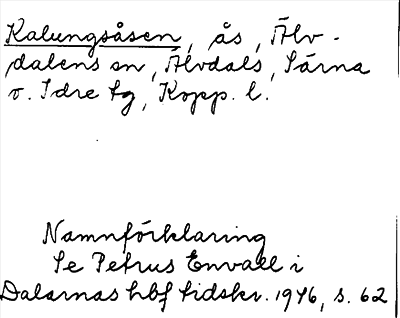 Kalungsåsen, ås, Älv-
dalens sn, Älvdals, Särna
o. Idre tg, Kopp. l.
Namnförklaring
Se Petrus Envall i
Dalarnas hbf tidskr. 1946, s. 62